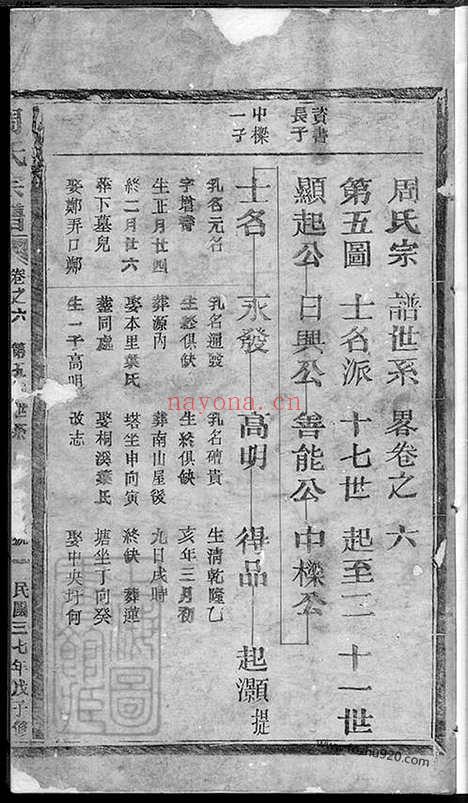 周氏宗譜世系畧卷之六
第五圖 士名派 十七世起至二十一世
資書長子
顯起公 日興公 善能公 中樑公
中樑一子
士名 永發 高明 得品 起灝 提
乳名元名 乳名通發 乳名積貴 生清乾隆乙
字增壽 生終俱缺 生終俱缺 亥年三月初
生正月廿四 葬源內 葬南山屋後 九日戌時
終二月廿六 娶本里葉氏 塔坐申向寅 終缺 葬蓮
葬下墓兒 葬同處 娶桐溪葉氏 塘坐丁向癸
娶鄭弄口鄭 生一子高明 改志 娶中央圩何
周氏宗譜 卷之六 第五 世系 民國三七年戊子修
nayona.cn